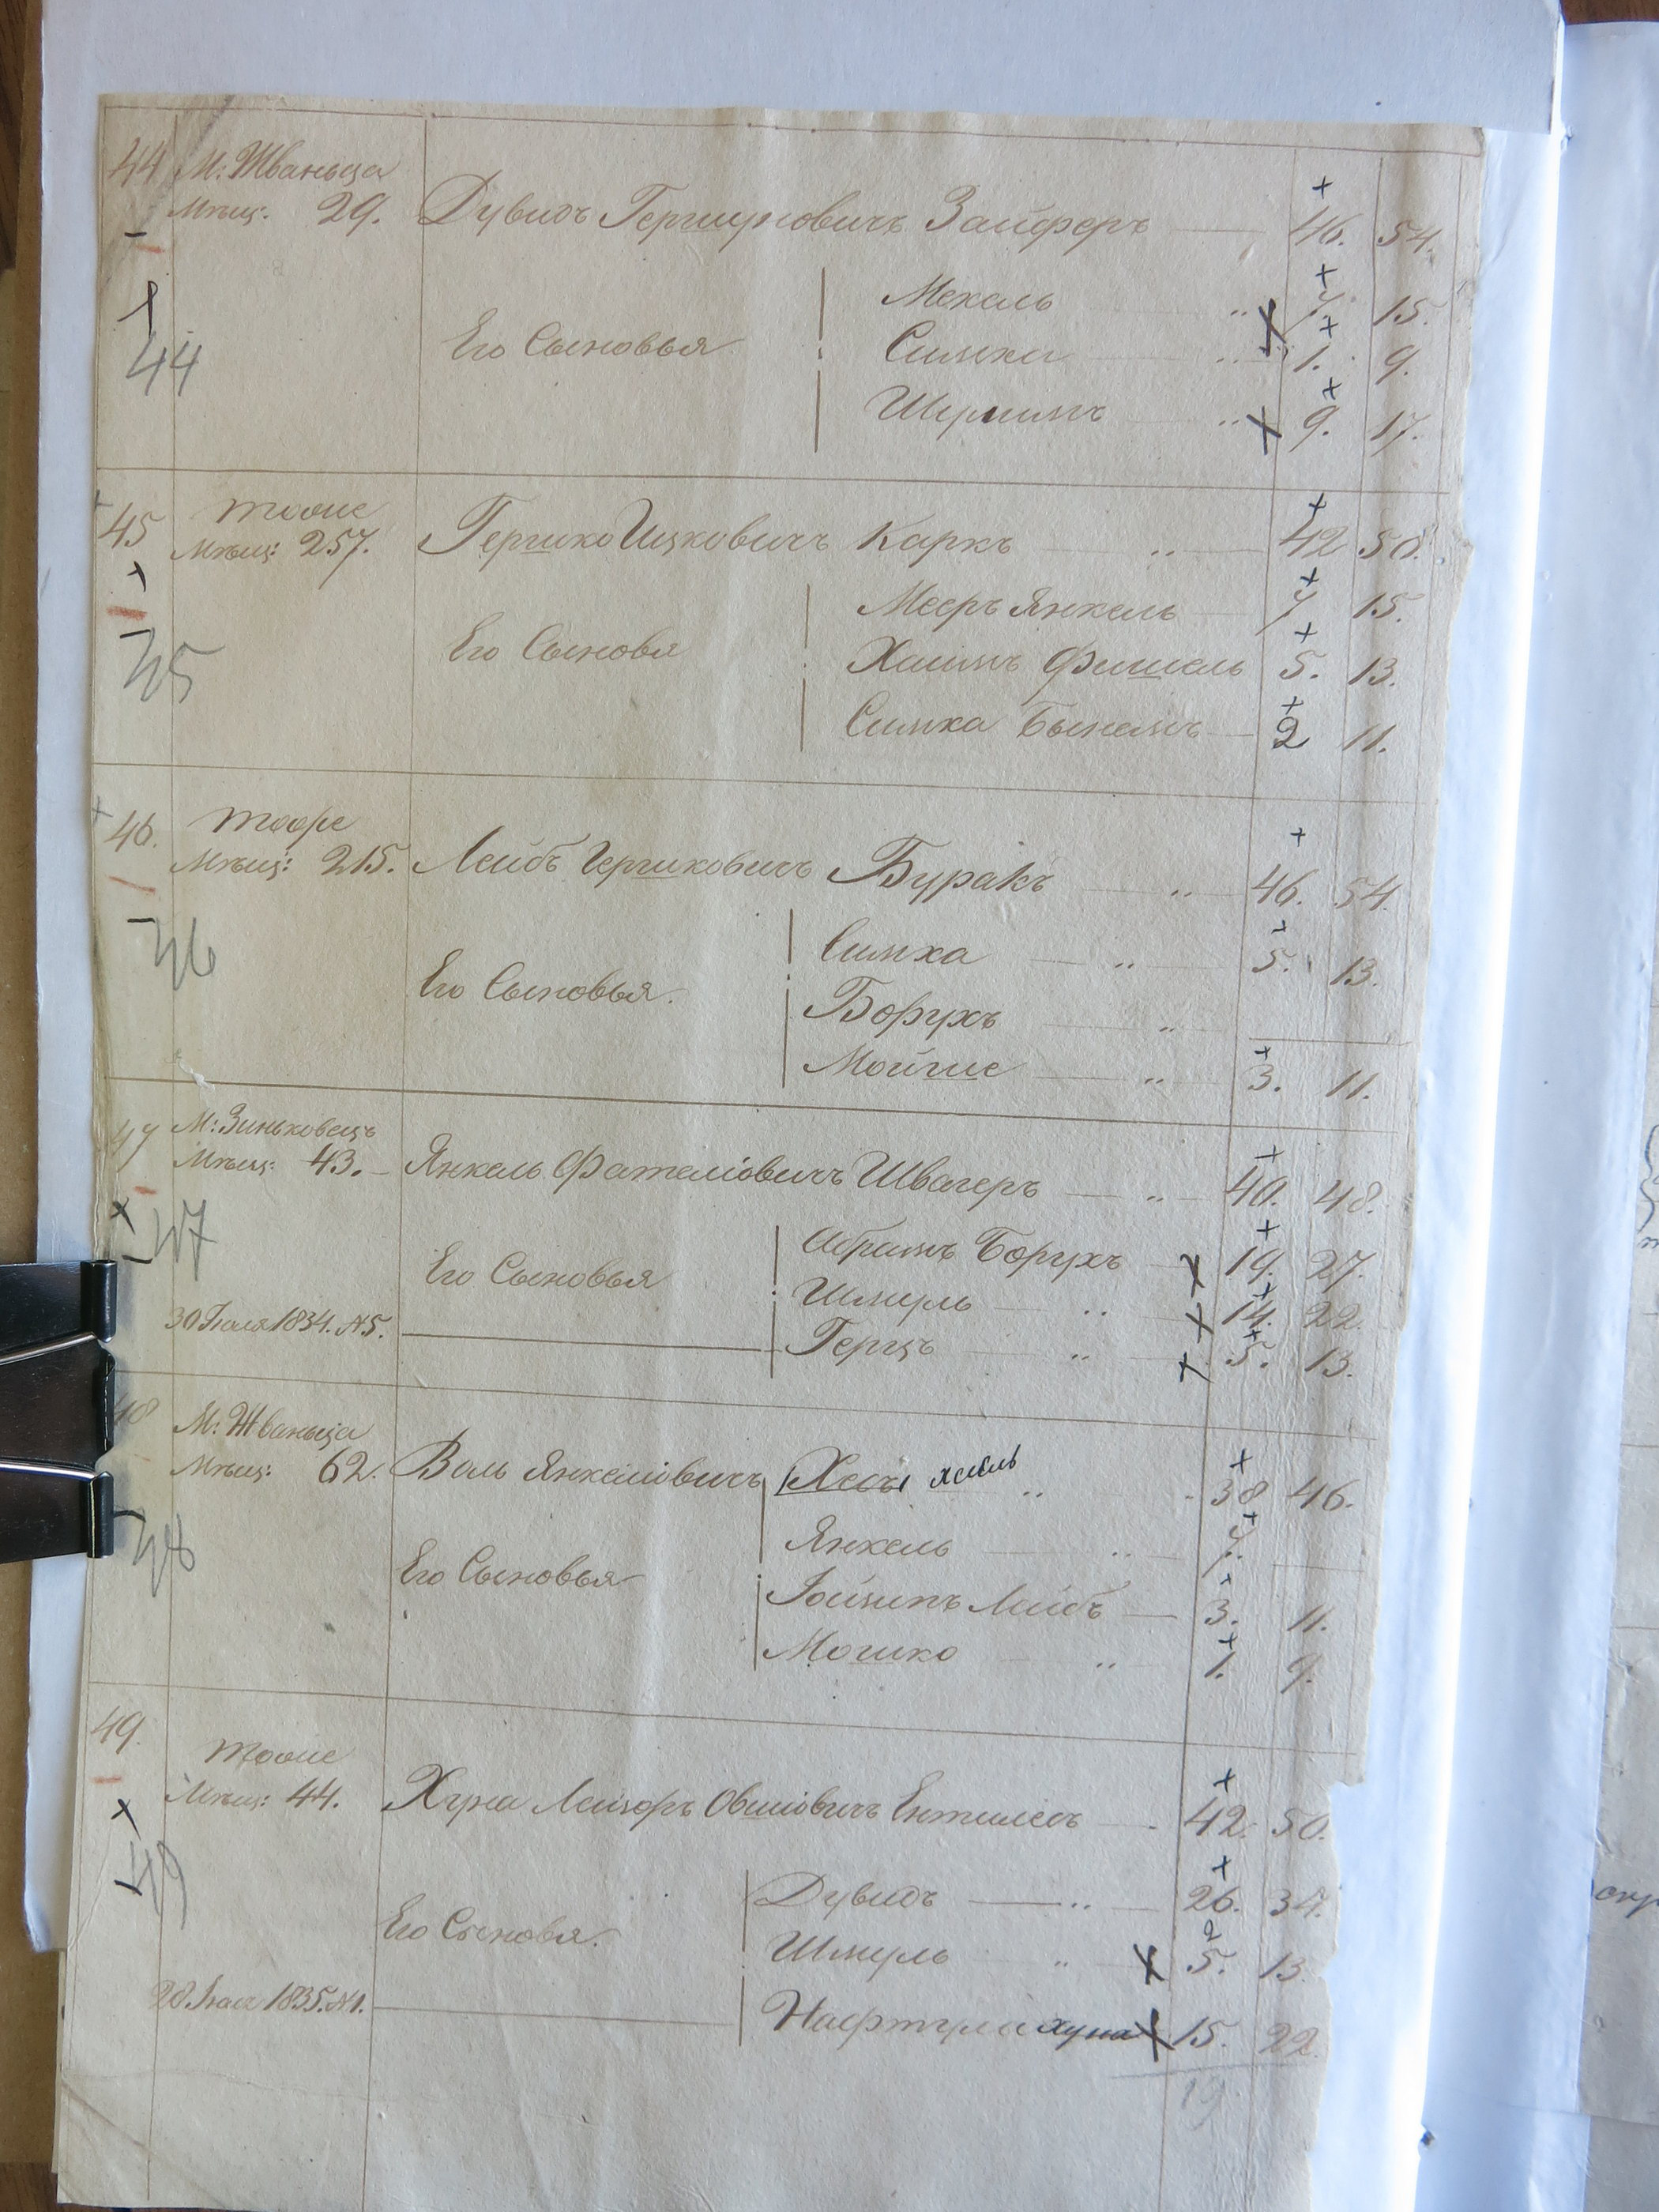 44 М: Жванъца
Мѣщ: 29. Дувидъ Гершуновичъ Зайферъ 46. 54.
Мехель 7. 15.
44 Его Сыновья Симха 1. 9.
Шулимъ 9. 17.
45 тоже
Мѣщ: 257. Гершко Ицковичъ Каркъ 42 50.
Мееръ Янкель 7 15.
45 Его Сыновя Хаимъ Фишель 5. 13.
Симха Бынемъ 2 11.
46. тоже
Мѣщ: 215. Лейбъ Гершковичъ Буракъ 46. 54.
Симха 5. 13.
46 Его Сыновья. Борухъ
Мойше 3. 11.
47 М: Зиньковецъ
Мѣщ: 43. Янкель Фателіовичъ Швагеръ 40. 48.
47 Абрамъ Борухъ 19. 27.
Его Сыновья Шмуль 14. 22.
30 Іюля 1834. №5. Герцъ 5. 13.
48 М: Жванъца
Мѣщ: 62. Волъ Янкеліовичъ Хесъ 38 46.
Янкель 7.
48 Его Сыновья Іойсипъ Лейбъ 3. 11.
Мошко 1. 9.
49. тоже
Мѣщ: 44. Хуна Лейзоръ Овшіовичъ Ентелисъ 42. 50.
49 Дувидъ 26. 34.
Его Сыновя. Шмуль 5. 13.
28. 1835. №1. Нафтула хуна 15. 22.
19